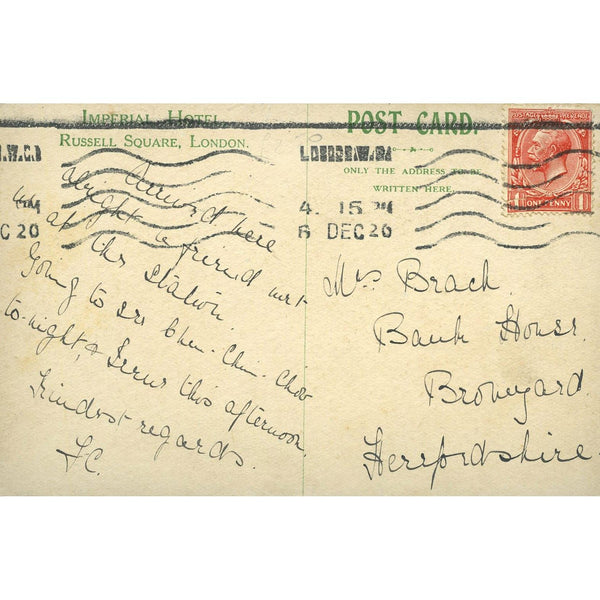 IMPERIAL HOTEL
RUSSELL SQUARE, LONDON.
POST CARD.
ONLY THE ADDRESS TO BE
WRITTEN HERE.
POSTAGE REVENUE
ONE PENNY
.W.C.1
PM
C 20
LONDON. W.C.1
4. 15 PM
6 DEC 20
Arrived here
alright & friend met
us at the station.
Going to see Chu. Chin. Chow
to-night, &
this afternoon.
Kindest regards.
Mrs Brach.
Bank House.
Bromyard.
Herefordshire.